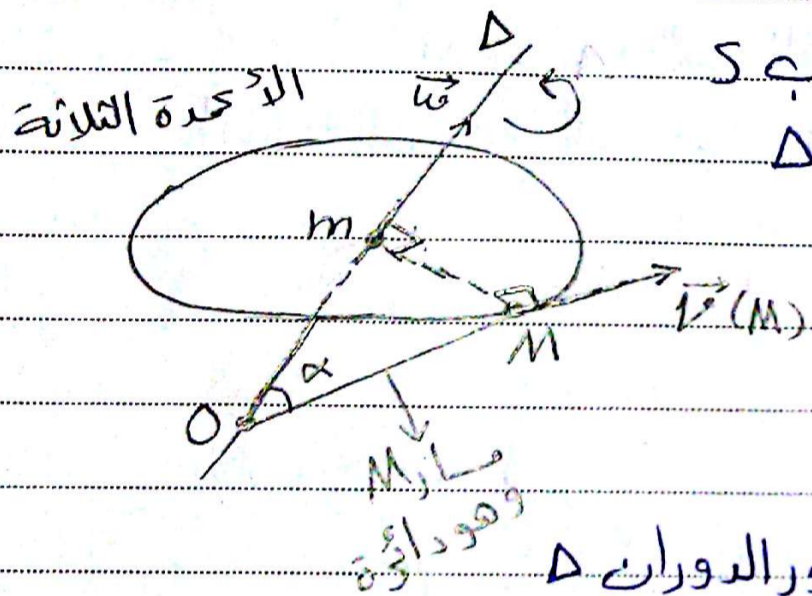 Δ
ب S
الأعمدة الثلاثة
ω⃗
Δ
m
V⃗(M)
M
α
O
مسار M
وهو دائرة
ور الدوران Δ